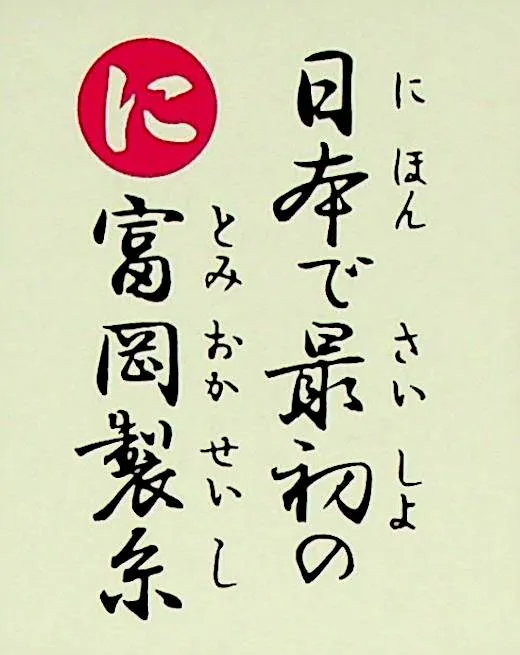 日本で最初の
にほん さいしよ
に
富岡製糸
とみおかせいし